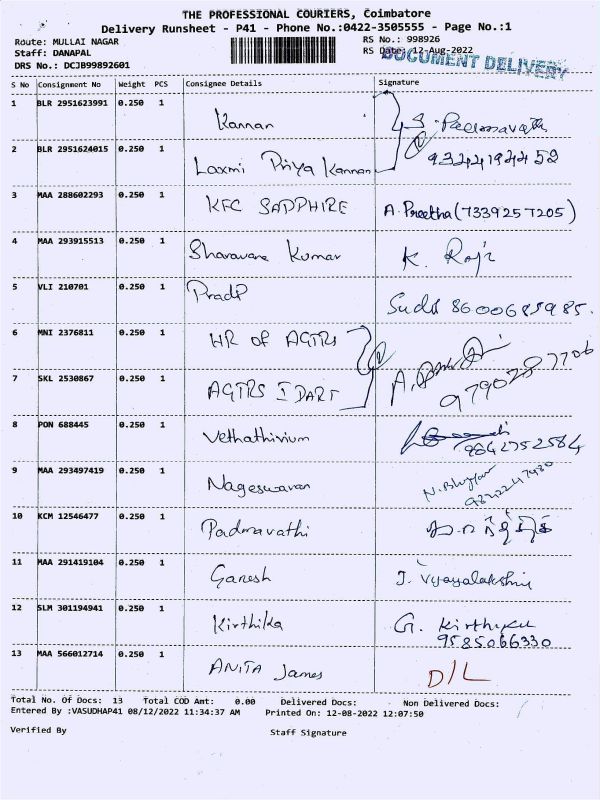 THE PROFESSIONAL COURIERS, Coimbatore
Delivery Runsheet - P41 - Phone No.:0422-3505555 - Page No.:1
Route: MULLAI NAGAR RS No.: 998926
Staff: DANAPAL RS Date: 12-Aug-2022
DRS No.: DCJB99892601 DOCUMENT DELIVERY
S No Consignment No Weight PCS Consignee Details Signature
1 BLR 2951623991 0.250 1 Kannan S. Padmavathi
2 BLR 2951624015 0.250 1 Laxmi Priya Kannan 93244194452
3 MAA 288602293 0.250 1 KFC SAPPHIRE A. Preetha (7339257205)
4 MAA 293915513 0.250 1 Sharavana Kumar K. Raji
5 VLI 210701 0.250 1 Pradip 8600685985.
6 MNI 2376811 0.250 1 HR OF AGTRS
7 SKL 2530867 0.250 1 AGTRS I DART A. 9790287706
8 PON 688445 0.250 1 Vethathirium 9842752584
9 MAA 293497419 0.250 1 Nageswaran N.
10 KCM 12546477 0.250 1 Padmavathi
11 MAA 291419104 0.250 1 Ganesh J. Vijayalakshmi
12 SLM 301194941 0.250 1 Kirthika G. Kirthika
9585066330
13 MAA 566012714 0.250 1 ANITA James D/L
Total No. Of Docs: 13 Total COD Amt: 0.00 Delivered Docs: Non Delivered Docs:
Entered By :VASUDHAP41 08/12/2022 11:34:37 AM Printed On: 12-08-2022 12:07:50
Verified By Staff Signature